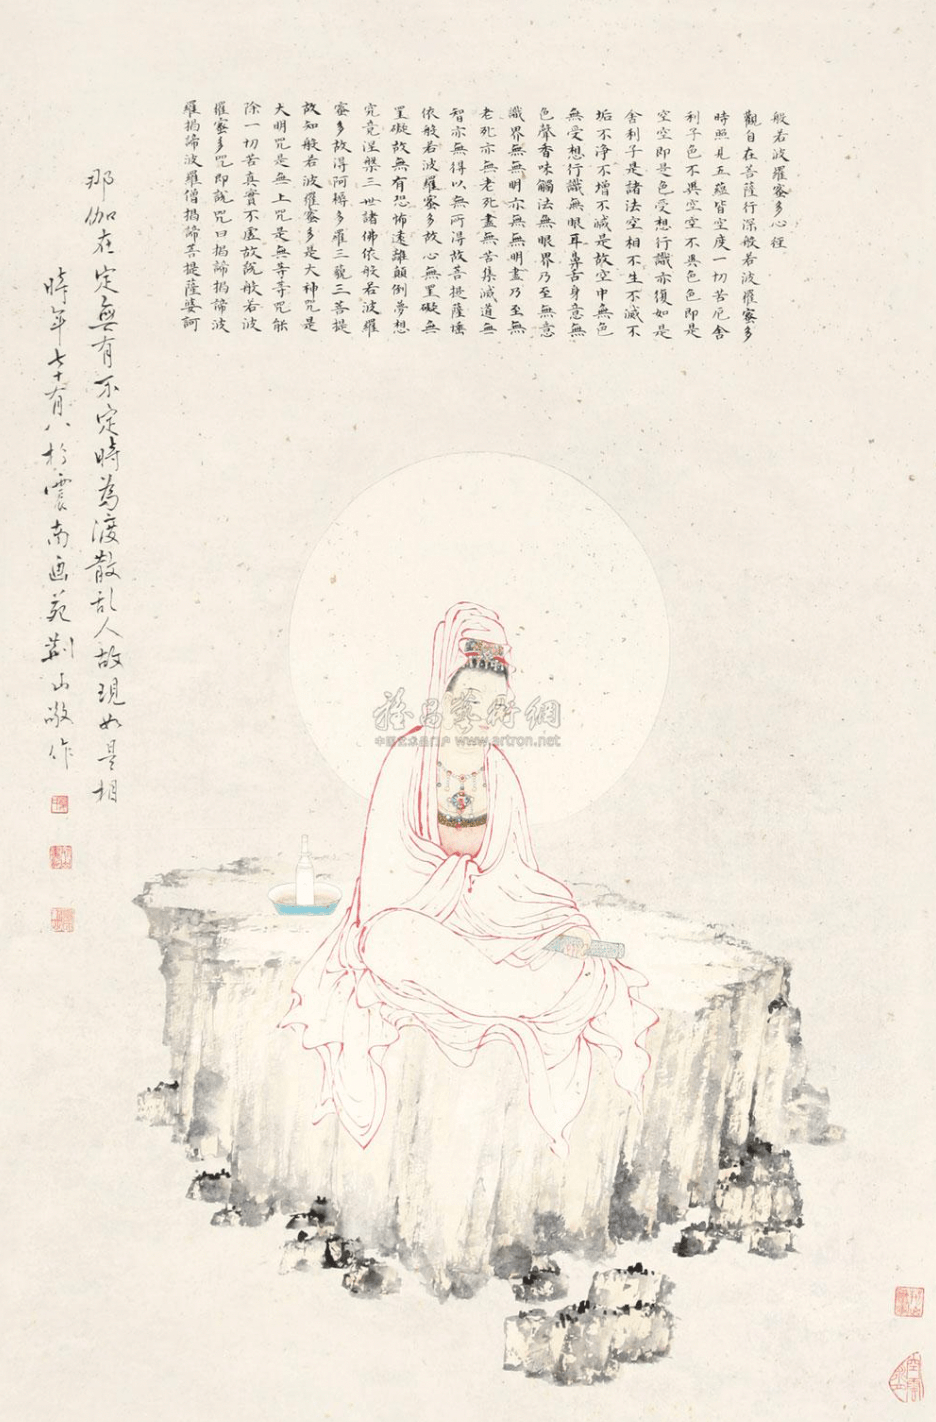 般若波羅蜜多心經
觀自在菩薩行深般若波羅蜜多
時照見五蘊皆空度一切苦厄舍
利子色不異空空不異色色即是
空空即是色受想行識亦復如是
舍利子是諸法空相不生不滅不
垢不淨不增不減是故空中無色
無受想行識無眼耳鼻舌身意無
色聲香味觸法無眼界乃至無意
識界無無明亦無無明盡乃至無
老死亦無老死盡無苦集滅道無
智亦無得以無所得故菩提薩埵
依般若波羅蜜多故心無罣礙無
罣礙故無有恐怖遠離顛倒夢想
究竟涅槃三世諸佛依般若波羅
蜜多故得阿耨多羅三藐三菩提
故知般若波羅蜜多是大神咒是
大明咒是無上咒是無等等咒能
除一切苦真實不虛故說般若波
羅蜜多咒即說咒曰揭諦揭諦波
羅揭諦波羅僧揭諦菩提薩婆訶
那伽在定無有不定時為渡散乱人故現如是相
時年七十有八於震南画苑荆山敬作
雅昌藝術網
中国艺术品门户 www.artron.net